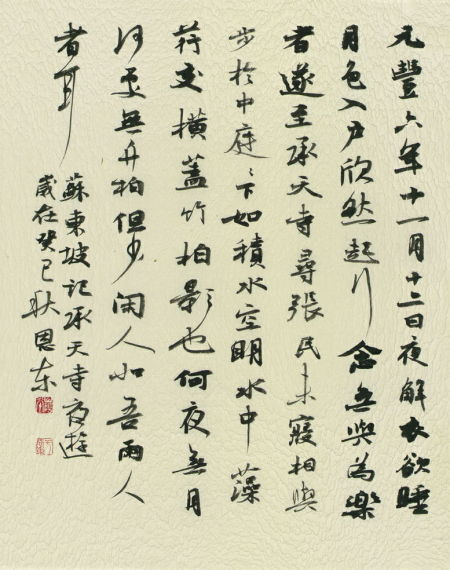 元豐六年十一月十二日夜解衣欲睡
月色入户欣然起行念無與為樂
者遂至承天寺尋張民未寢相與
步於中庭々下如積水空明水中藻
荇交橫蓋竹柏影也何夜無月
何處無竹柏但少閑人如吾兩人
者耳
蘇東坡記承天寺夜遊
歲在癸巳秋恩东